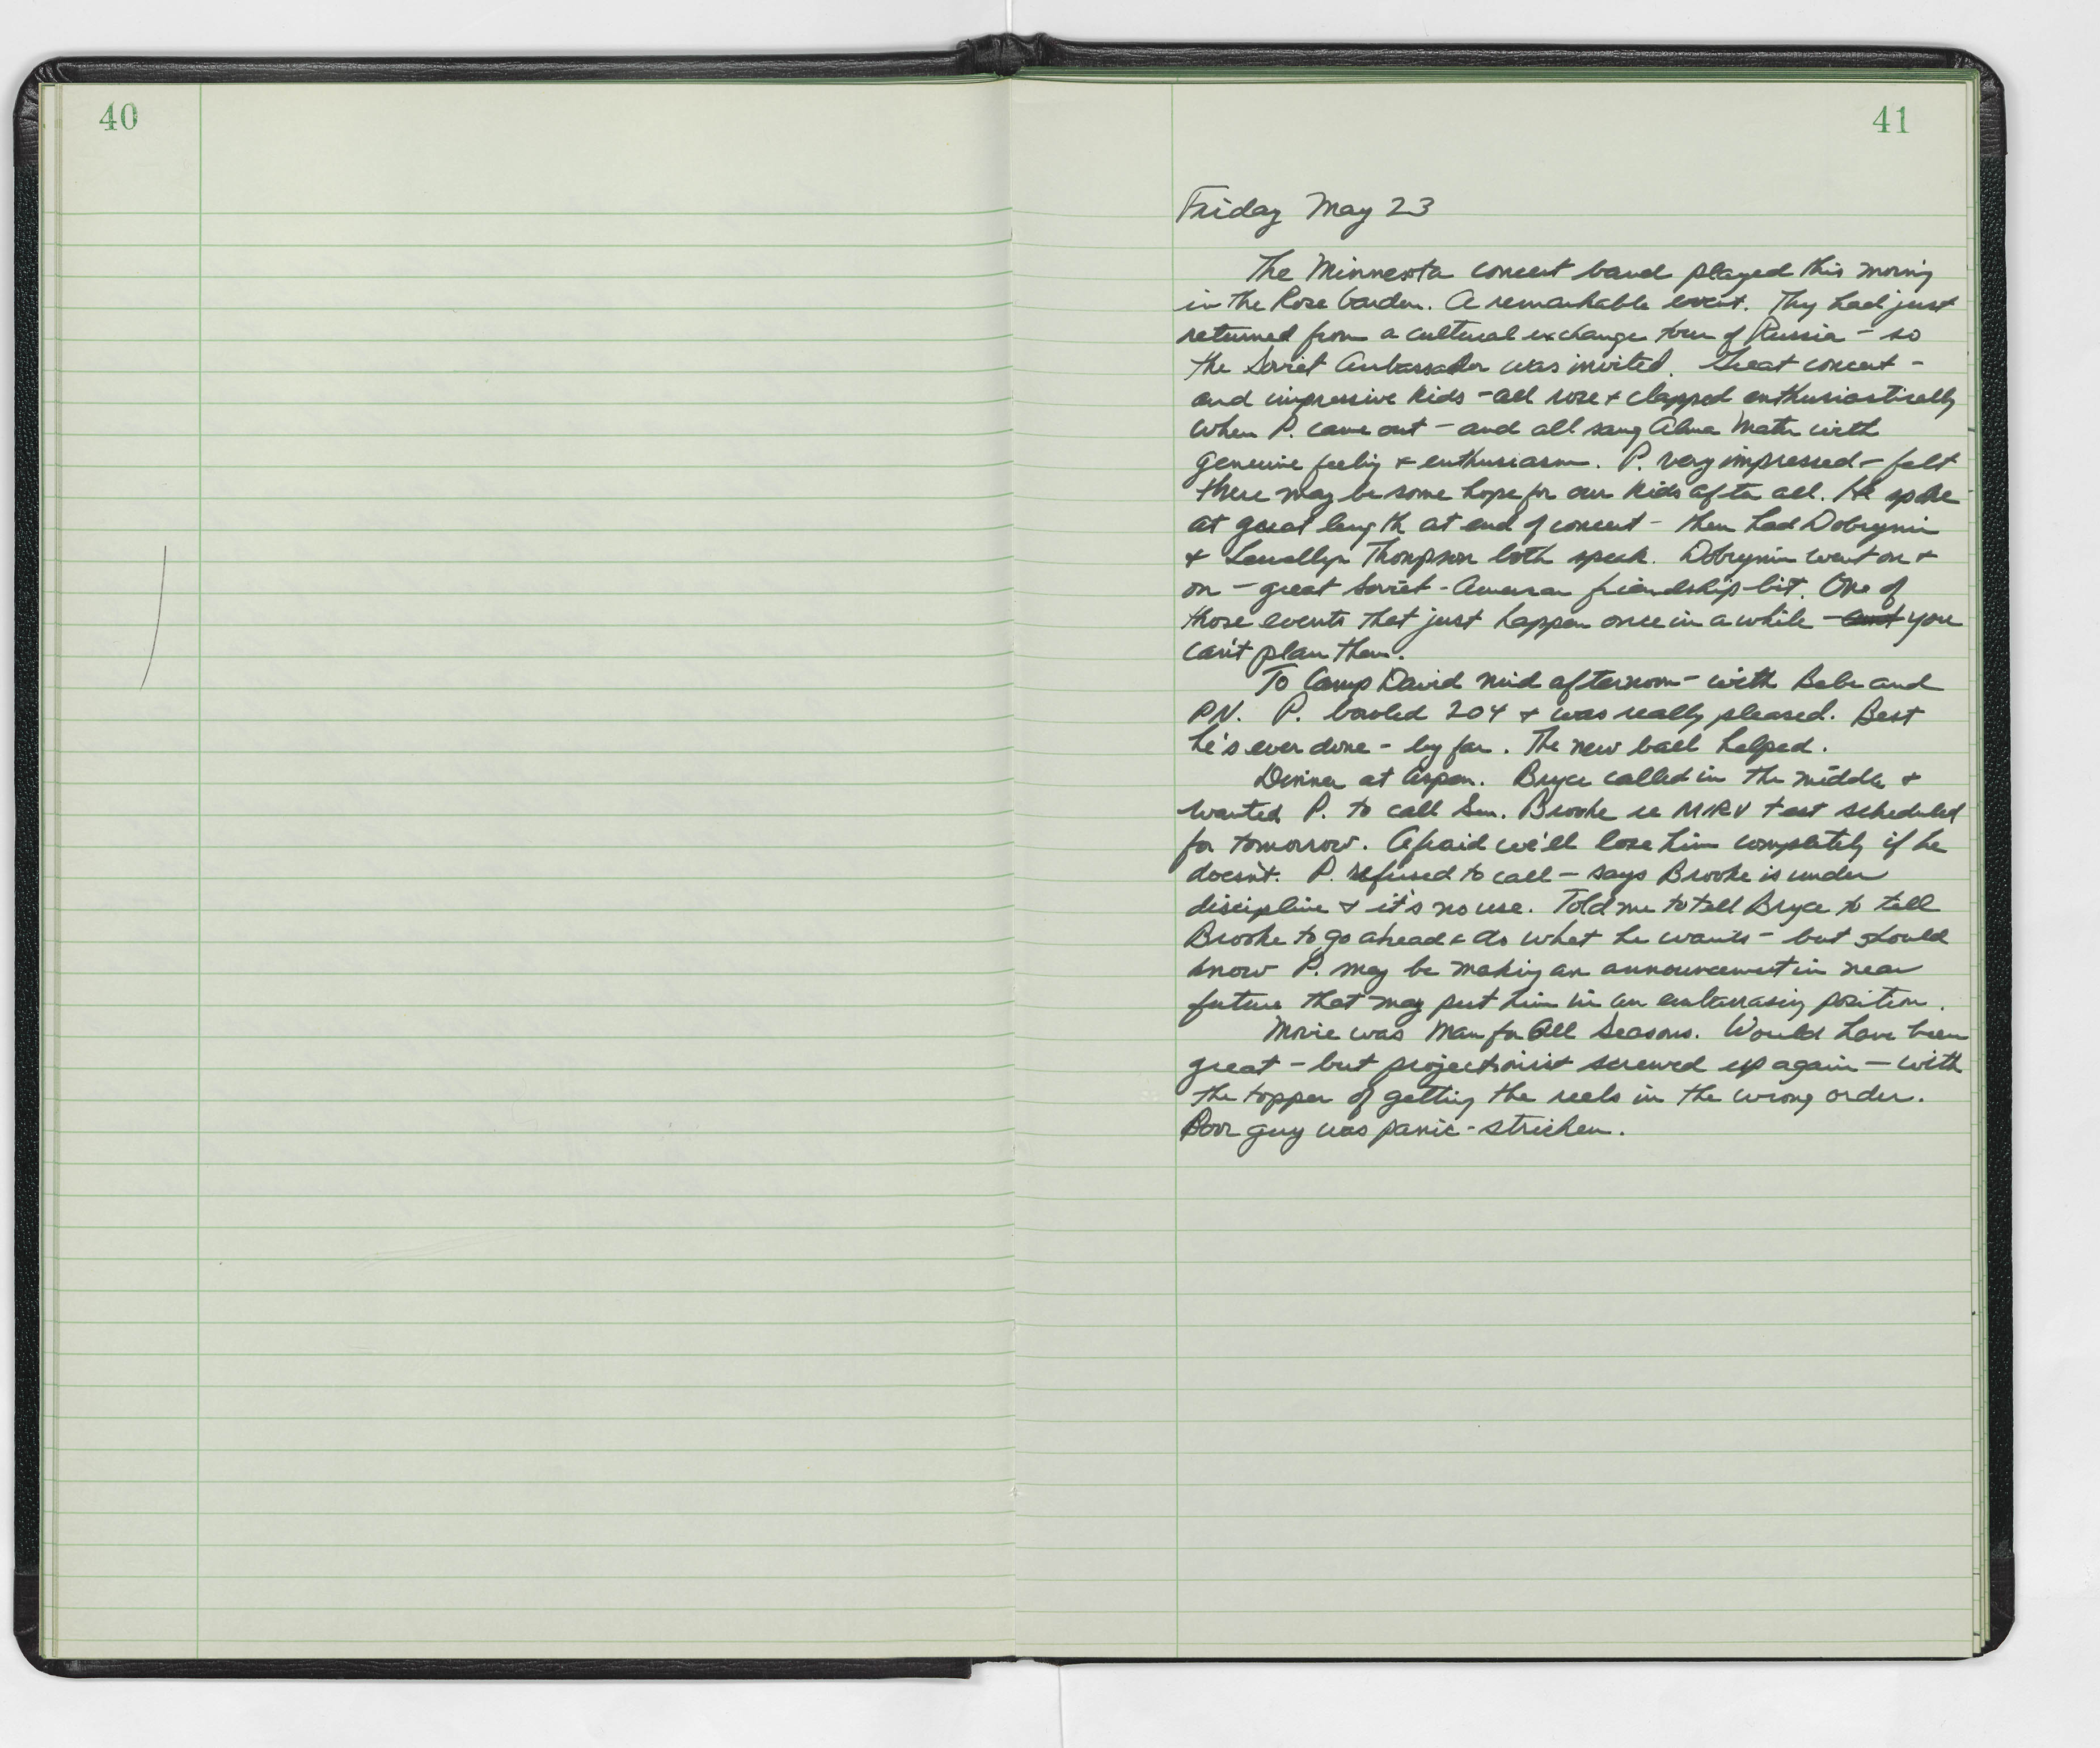 40
41
Friday May 23
The Minnesota concert band played this morning
in the Rose Garden. A remarkable event. They had just
returned from a cultural exchange tour of Russia - so
the Soviet Ambassador was invited. Great concert -
and impressive kids - all rose + clapped enthusiastically
when P. came out - and all sang Alma Mater with
genuine feeling + enthusiasm. P. very impressed - felt
there may be some hope for our kids after all. He spoke
at great length at end of concert - then had Dobrynin
+ Llewellyn Thompson both speak. Dobrynin went on +
on - great Soviet-American friendship bit. One of
those events that just happen once in a while - you
can't plan them.
To Camp David mid afternoon - with Bebe and
PN. P. bowled 204 + was really pleased. Best
he's ever done - by far. The new ball helped.
Dinner at Aspen. Bryce called in the middle +
wanted P. to call Sen. Brooke re MIRV test scheduled
for tomorrow. Afraid we'll lose him completely if he
doesn't. P. refused to call - says Brooke is under
discipline + it's no use. Told me to tell Bryce to tell
Brooke to go ahead + do what he wants - but should
know P. may be making an announcement in near
future that may put him in an embarrasing position.
Movie was Man for All Seasons. Would have been
great - but projectionist screwed up again - with
the topper of getting the reels in the wrong order.
Poor guy was panic-stricken.